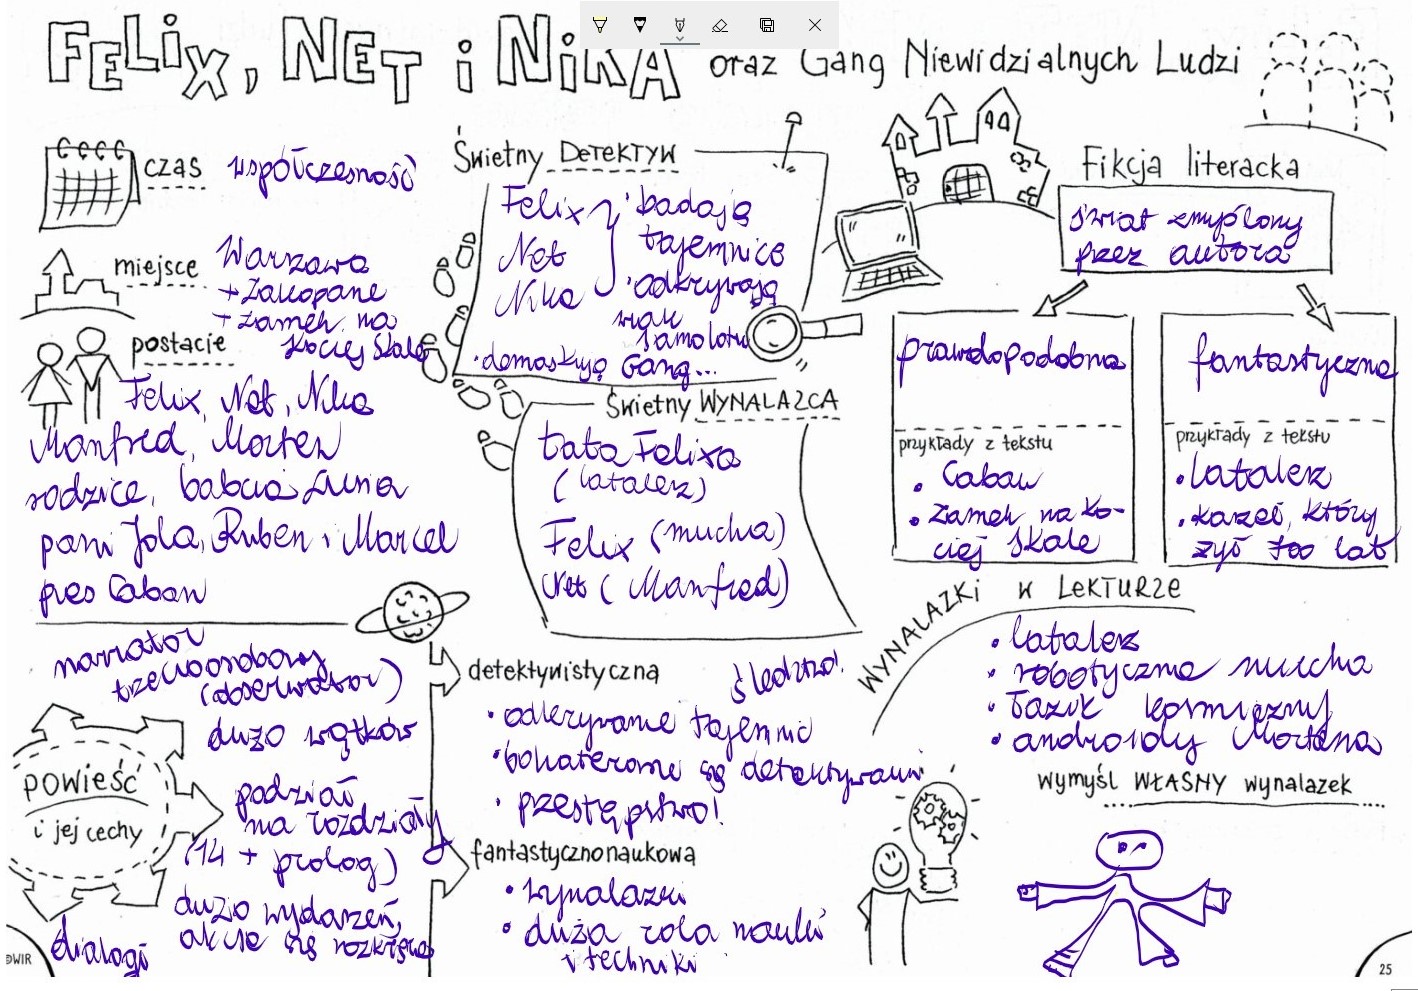 FELIX, NET i NIKA oraz Gang Niewidzialnych Ludzi
czas współczesność
miejsce Warszawa
+ Zakopane
+ zamek na
Kociej Skale
postacie
Felix, Net, Nika
Manfred, Morten
rodzice, babcia Lucina
pani Jola, Ruben i Marcel
pies Caban
Świetny DETEKTYW
Felix
Net
Nika
· badają
tajemnice
· odkrywają
wrak
samolotu
· demaskują Gang...
Świetny WYNALAZCA
tata Felixa
(latalerz)
Felix (mucha)
Net (Manfred)
Fikcja literacka
świat zmyślony
przez autora
prawdopodobna
przykłady z tekstu
• Caban
• zamek na Ko-
ciej Skale
fantastyczna
przykłady z tekstu
• latalerz
• karzeł, który
żył 700 lat
narrator
trzecioosobowy
(obserwator)
dużo wątków
powieść
i jej cechy
podział
na rozdziały
(14 + prolog)
dużo wydarzeń,
akcja się rozkręca
dialogi
detektywistyczna
śledztwo!
• odkrywanie tajemnic
• bohaterowie są detektywami
• przestępstwo!
fantastycznonaukowa
• wynalazki
• duża rola nauki
i techniki
WYNALAZKI W LEKTURZE
• latalerz
• robotyczna mucha
• łazik kosmiczny
• androidy Mortena
wymyśl WŁASNY wynalazek
DWIR
25